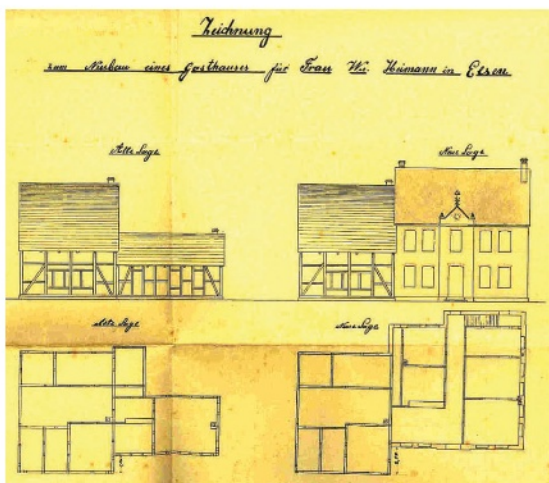 Zeichnung
zum Neubau eines Gasthauses für Frau Ww. Heimann in Elsen
Alte Lage
Neue Lage
Alte Lage
Neue Lage